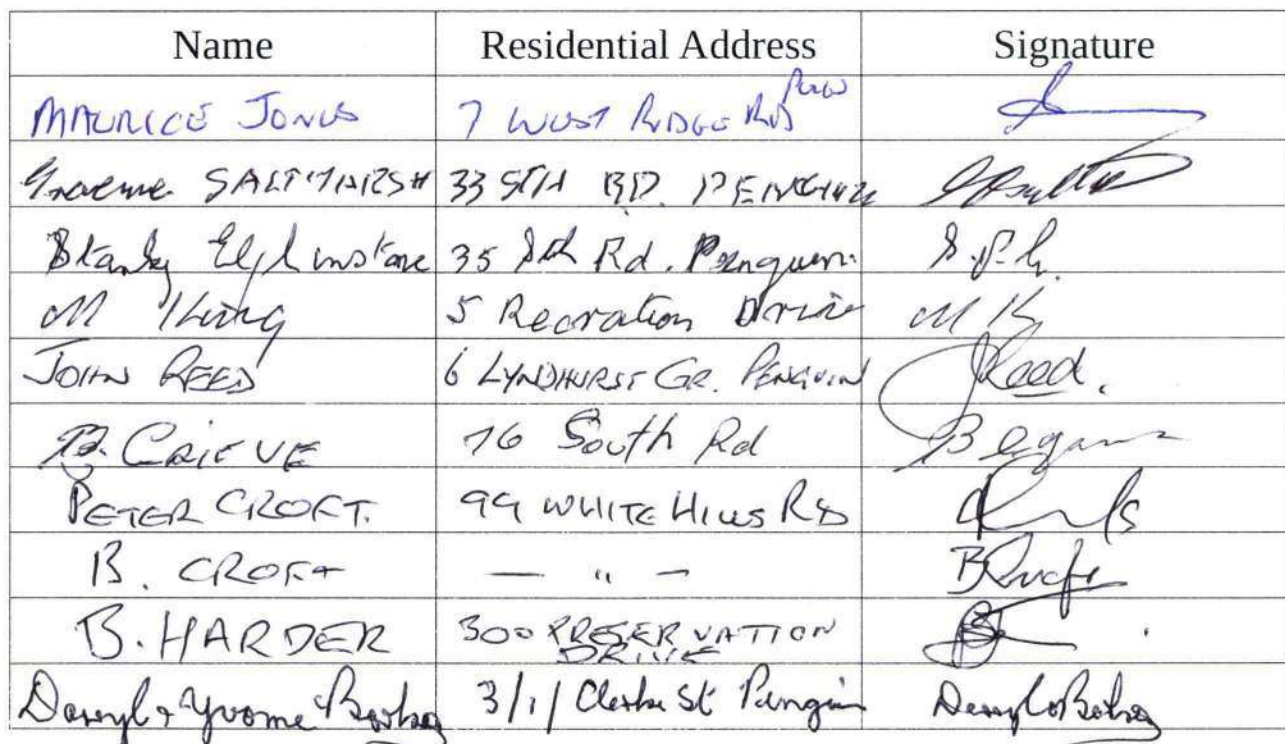 Name Residential Address Signature
MAURICE JONES 7 WEST RIDGE RD
Graeme SALTMARSH 33 5TH RD. PENGUIN
Stanley Elphinstone 35 5th Rd. Penguin
M King 5 Recration Drive M K
JOHN REED 6 LYNDHURST GR. PENGUIN JReed.
B. GRIEVE 76 South Rd
PETER CROFT. 99 WHITE HILLS RD
B. CROFT — " —
B. HARDER 300 PRESERVATION
DRIVE
Darryl & Yvonne 3/11 Clerke St Penguin